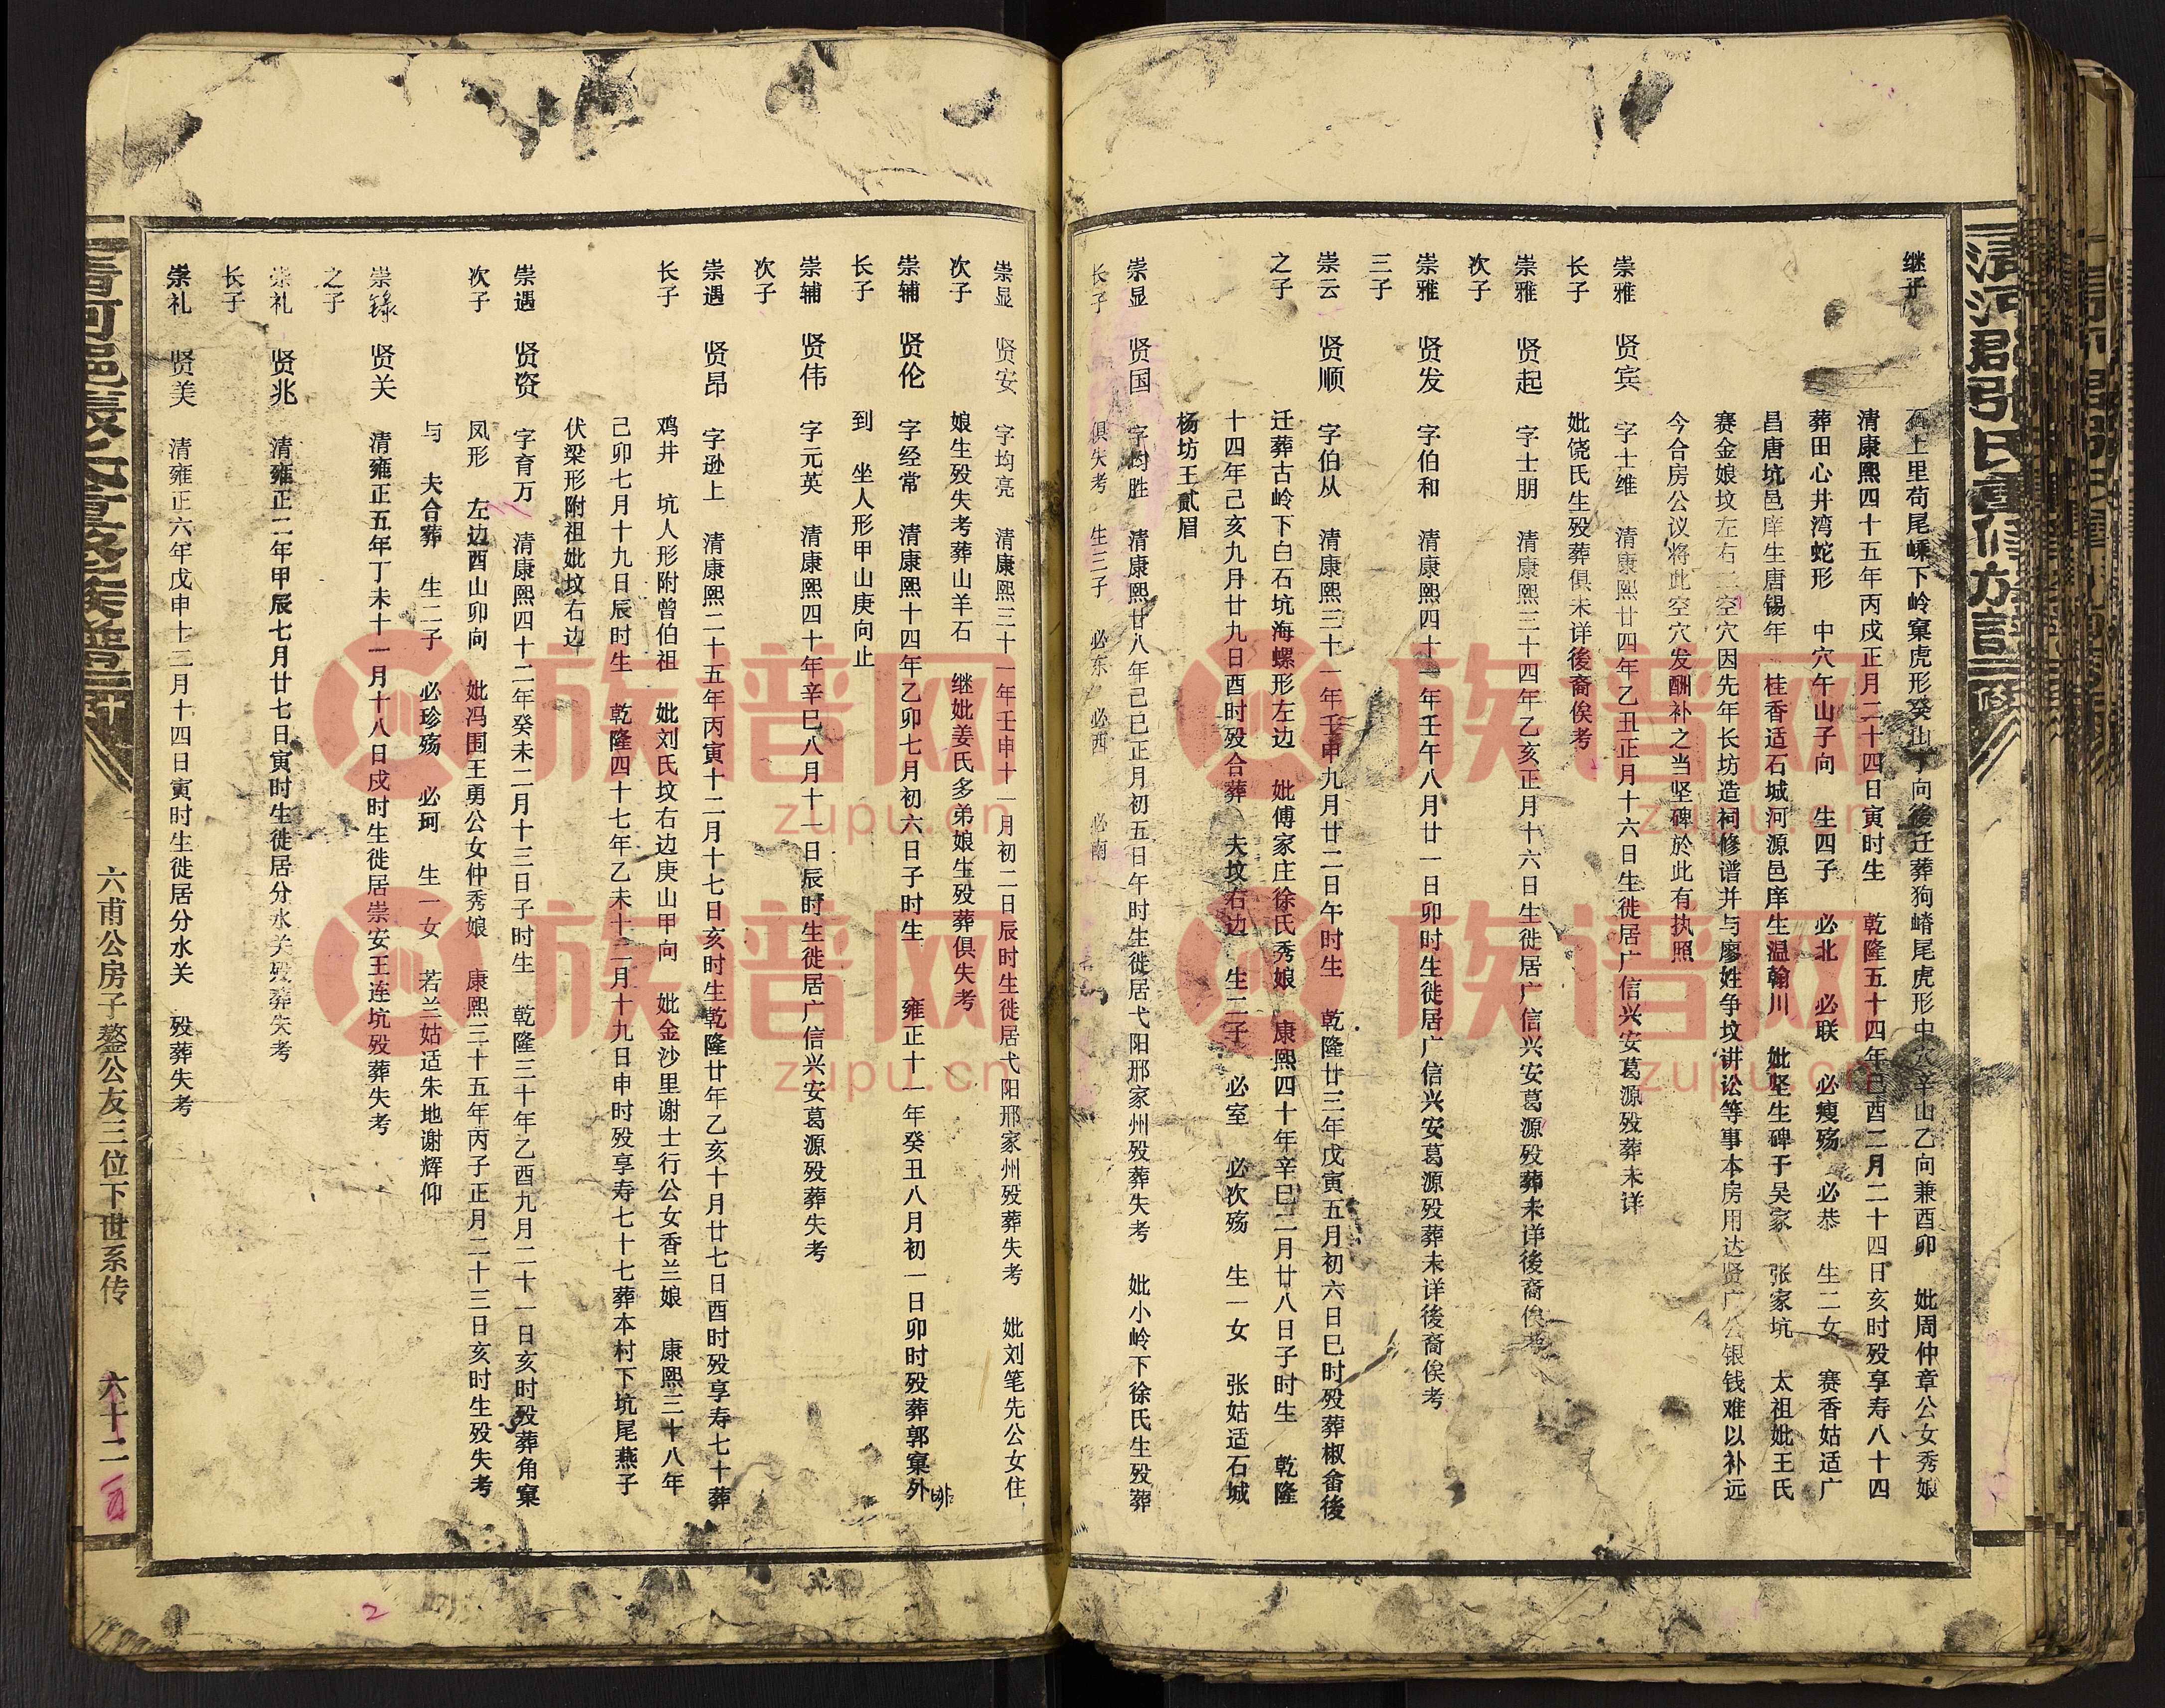 继子
石上里苟尾嵊下岭窠虎形癸山丁向後迁葬狗嵴尾虎形中穴辛山乙向兼酉卯 妣周仲章公女秀娘
清康熙四十五年丙戌正月二十四日寅时生 乾隆五十四年己酉二月二十四日亥时殁享寿八十四
葬田心井湾蛇形 中穴午山子向 生四子 必北 必联 必瘦殇 必恭 生二女 赛香姑适广
昌唐坑邑庠生唐锡年 桂香适石城河源邑庠生温翰川 妣坚生碑于吴家 张家坑 太祖妣王氏
赛金娘坟左右二空穴因先年长坊造祠修谱并与廖姓争坟讲讼等事本房用达贤广公银钱难以补远
今合房公议将此空穴发酬补之当坚碑於此有执照
崇雅 贤宾 字士维 清康熙廿四年乙丑正月十六日生徙居广信兴安葛源殁葬未详
长子 妣饶氏生殁葬俱未详後裔俟考
崇雅 贤起 字士朋 清康熙三十四年乙亥正月十六日生徙居广信兴安葛源殁葬未详後裔俟考
次子
崇雅 贤发 字伯和 清康熙四十一年壬午八月廿一日卯时生徙居广信兴安葛源殁葬未详後裔俟考
三子
崇云 贤顺 字伯从 清康熙三十一年壬申九月廿二日午时生 乾隆廿三年戊寅五月初六日巳时殁葬椒畲後
之子 迁葬古岭下白石坑海螺形左边 妣傅家庄徐氏秀娘 康熙四十年辛巳二月廿八日子时生 乾隆
十四年己亥九月廿九日酉时殁合葬 夫坟右边 生二子 必室 必次殇 生一女 张姑适石城
杨坊王貮眉
崇显 贤国 字均胜 清康熙廿八年己巳正月初五日午时生徙居弋阳邢家州殁葬失考 妣小岭下徐氏生殁葬
长子 俱失考 生三子 必东 必西 必南
崇显 贤安 字均亮 清康熙三十一年壬申十一月初二日辰时生徙居弋阳邢家州殁葬失考 妣刘笔先公女住
次子 娘生殁失考葬山羊石 继妣姜氏多弟娘生殁葬俱失考
崇辅 贤伦 字经常 清康熙十四年乙卯七月初六日子时生 雍正十一年癸丑八月初一日卯时殁葬郭窠外
长子 到 坐人形甲山庚向止
崇辅 贤伟 字元英 清康熙四十年辛巳八月十一日辰时生徙居广信兴安葛源殁葬失考
次子
崇遇 贤昂 字逊上 清康熙二十五年丙寅十二月十七日亥时生乾隆廿年乙亥十月廿七日酉时殁享寿七十葬
长子 鸡井 坑人形附曾伯祖 妣刘氏坟右边庚山甲向 妣金沙里谢士行公女香兰娘 康熙三十八年
己卯七月十九日辰时生 乾隆四十七年乙未十二月十九日申时殁享寿七十七葬本村下坑尾燕子
伏梁形附祖妣坟右边
崇遇 贤资 字育万 清康熙四十二年癸未二月十三日子时生 乾隆三十年乙酉九月二十一日亥时殁葬角窠
次子 凤形 左边酉山卯向 妣冯围王勇公女仲秀娘 康熙三十五年丙子正月二十三日亥时生殁失考
与 夫合葬 生二子 必珍殇 必珂 生一女 若兰姑适朱地谢辉仰
崇録 贤关 清雍正五年丁未十一月十八日戌时生徙居崇安王连坑殁葬失考
之子
崇礼 贤兆 清雍正二年甲辰七月廿七日寅时生徙居分水关殁葬失考
长子
崇礼 贤美 清雍正六年戊申十二月十四日寅时生徙居分水关 殁葬失考
六甫公房子鏊公友三位下世系传 六十二
清河郡张氏重修方谱
族谱网
zupu.cn
族谱网
zupu.cn
族谱网
zupu.cn
族谱网
zupu.cn
2